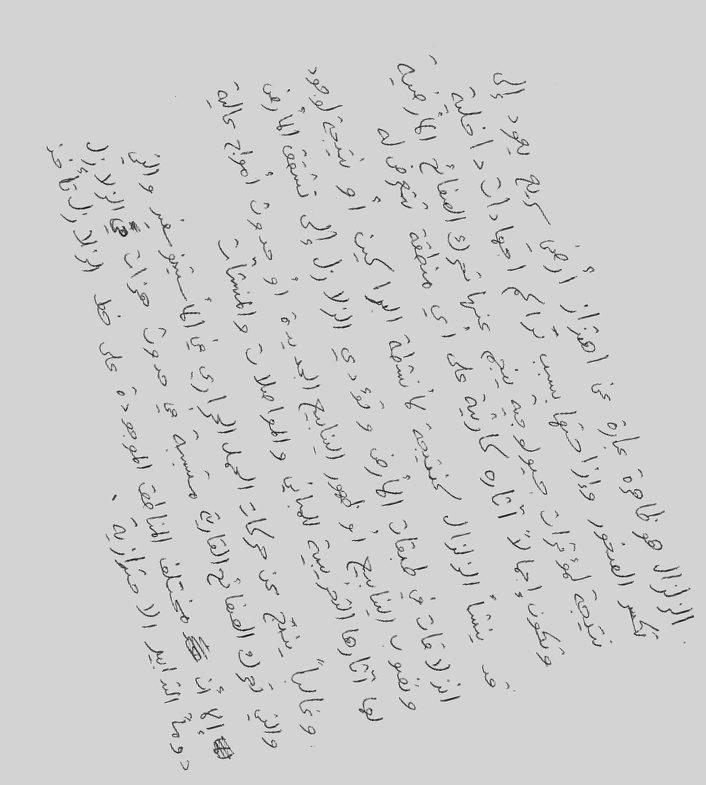 الزلزال هو ظاهرة عبارة عن اهتزاز أرضي سريع يعود إلى
تكسر الصخور وإزاحتها بسبب تراكم اجهادات داخلية
نتيجة لمؤثرات جيولوجية ينجم عنها تحرك الصفائح الأرضية
وتكون إجمالاً آثاره كارثية على أي منطقة تتعرض له
قد ينشأ الزلزال كنتيجة لأنشطة البراكين أو نتيجة لوجود
انزلاقات في طبقات الأرض وتؤدي الزلازل إلى تشقق الأرض
ونضوب الينابيع أو ظهور الينابيع الجديدة أو حدوث أمواج عالية
لها آثارها التخريبية للمباني والمواصلات والمنشآت
وغالباً ينتج عن حركات الحمل الحراري في الأستينوسفير والتي
والتي تحرك الصفائح القارية متسببة في حدوث هزات هي الزلازل
إلا أن مختلف المناطق الموجودة على خط الزلازل تأخذ
دوماً التدابير الاحترازية .